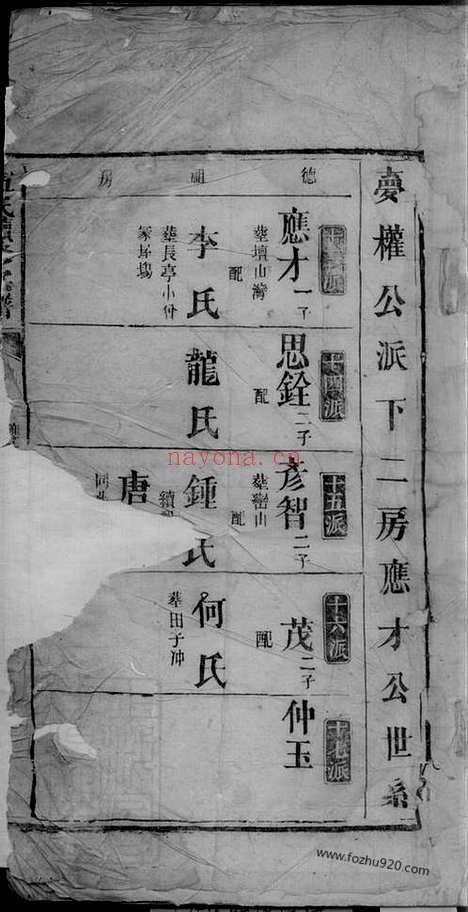 夢權公派下二房應才公世系
德祖房
十三派
應才一子
葬壇山灣
配
李氏
葬長亭小份
十四派
思銓二子
配
龍氏
十五派
彦智二子
葬巒山
配
鍾氏
續
唐
同
十六派
茂二子
配
何氏
葬田子冲
十七派
仲玉
nayona.cn
www.fozhu920.com